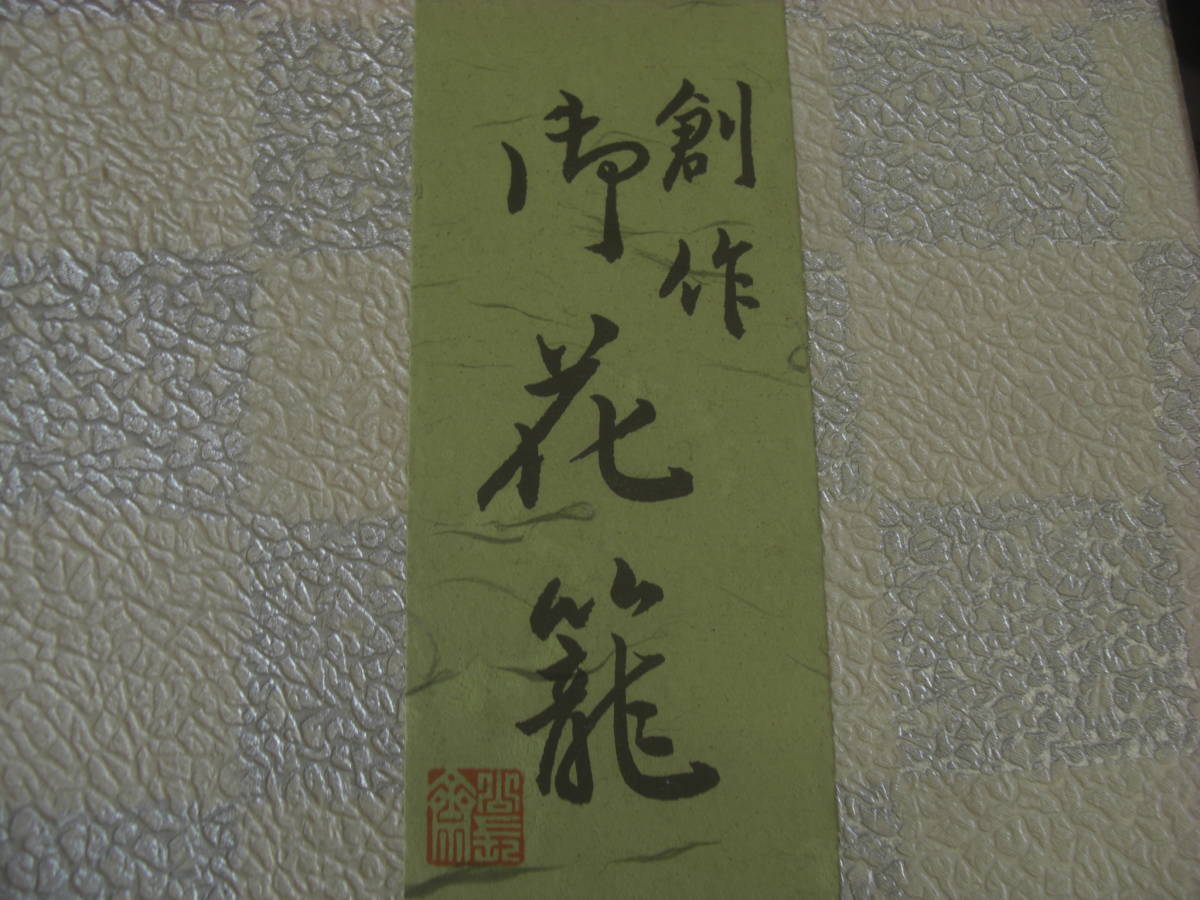 創作
御花籠